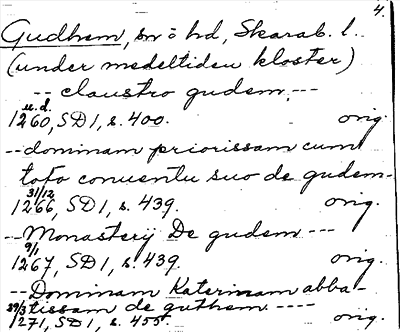 4.
Gudhem, sn o hd, Skarab. l.
(under medeltiden kloster)
-- claustro gudem, --
u.d.
1260, SD 1, s. 400. orig.
-- dominam priorissam cum
toto conuentu suo de gudem-
31/12
1266, SD 1, s. 439. orig.
-- Monasterij De gudem ---
9/1
1267, SD 1, s. 439 orig.
-- Dominam Katerinam abba-
tissam de guthem ----
1271, SD 1, s. 455. orig.